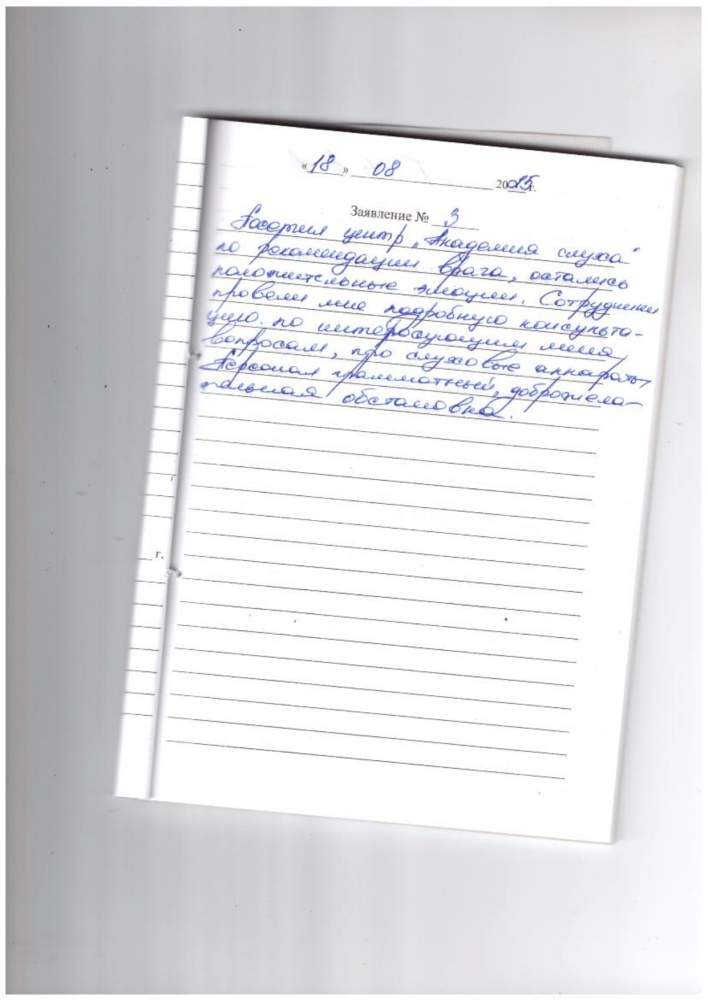 «18» 08 2015г.
Заявление № 3
Посетил центр „Академия слуха"
по рекомендации врача, остались
положительные эмоции. Сотрудники
провели мне подробную консульта-
цию. по интересующим меня
вопросам, про слуховые аппараты,
Персонал грамотный, доброжела-
тельная обстановка.
г.